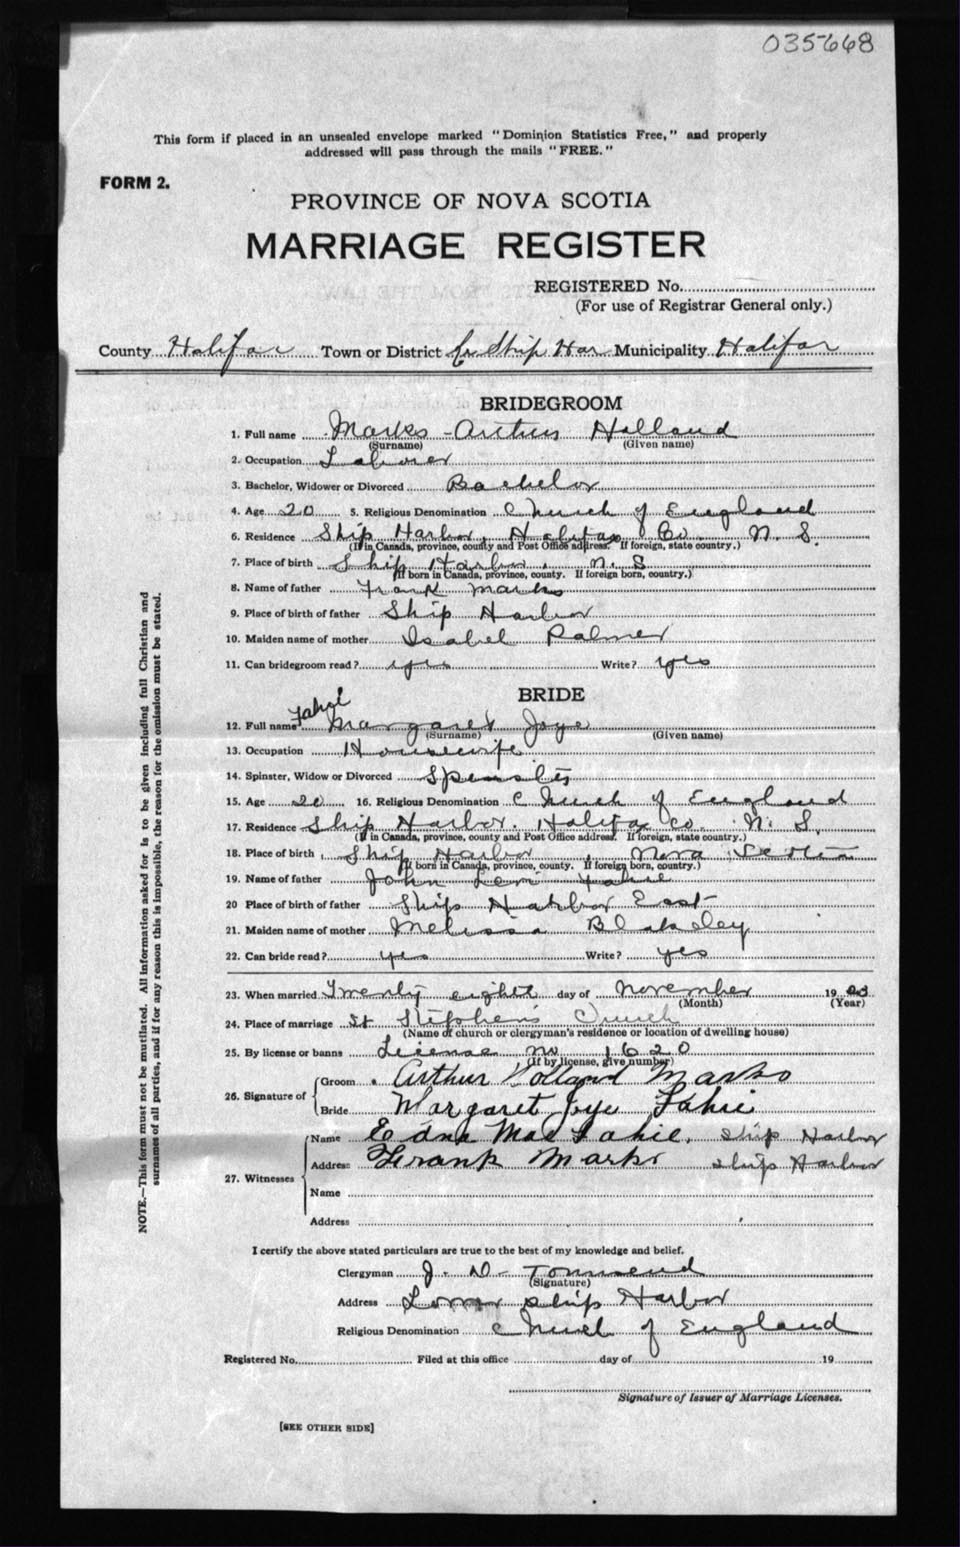 035668
This form if placed in an unsealed envelope marked "Dominion Statistics Free," and properly
addressed will pass through the mails "FREE."
FORM 2.
PROVINCE OF NOVA SCOTIA
MARRIAGE REGISTER
REGISTERED No.
(For use of Registrar General only.)
County Halifax Town or District Ship Har Municipality Halifax
BRIDEGROOM
1. Full name Marks Arthur Holland
(Surname) (Given name)
2. Occupation Laborer
3. Bachelor, Widower or Divorced Bachelor
4. Age 20 5. Religious Denomination Church of England
6. Residence Ship Harbor, Halifax Co. N. S.
(If in Canada, province, county and Post Office address. If foreign, state country.)
7. Place of birth Ship Harbor, N. S
(If born in Canada, province, county. If foreign born, country.)
8. Name of father Frank Marks
9. Place of birth of father Ship Harbor
10. Maiden name of mother Isabel Palmer
11. Can bridegroom read? yes Write? yes
BRIDE
12. Full name Fahie Margaret Joye
(Surname) (Given name)
13. Occupation Housewife
14. Spinster, Widow or Divorced Spinster
15. Age 20 16. Religious Denomination Church of England
17. Residence Ship Harbor. Halifax Co. N. S.
(If in Canada, province, county and Post Office address. If foreign, state country.)
18. Place of birth Ship Harbor, Nova Scotia
(If born in Canada, province, county. If foreign born, country.)
19. Name of father John Fahie
20 Place of birth of father Ship Harbor East
21. Maiden name of mother Melissa Blakeley
22. Can bride read? yes Write? yes
23. When married Twenty eight day of November 19
(Month) (Year)
24. Place of marriage St Stephens Church
(Name of church or clergyman's residence or location of dwelling house)
25. By license or banns License no 1620
(If by license, give number)
26. Signature of Groom Arthur Holland Marks
Bride Margaret Joye Fahie
27. Witnesses
Name Edna Mae Fahie, Ship Harbor
Address Frank Marks Ship Harbor
Name
Address
I certify the above stated particulars are true to the best of my knowledge and belief.
Clergyman J. N. Townsend
(Signature)
Address Lower Ship Harbor
Religious Denomination Church of England
Registered No. Filed at this office day of 19
Signature of Issuer of Marriage Licenses.
[SEE OTHER SIDE]
NOTE.—This form must not be mutilated. All information asked for is to be given including full Christian and
surnames of all parties, and if for any reason this is impossible, the reason for the omission must be stated.